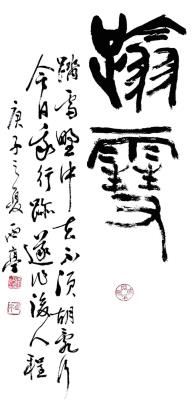 雪
踏雪埜中去不須胡亂行
今日我行跡遂作後人程
庚子之夏西臺